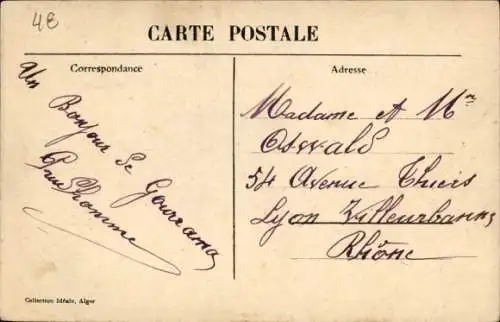 4E
CARTE POSTALE
Correspondance
Adresse
un
Bonjour de Gourrama
Prudhomme
Madame et Mr
Oswald
54 Avenue Thiers
Lyon Villeurbanne
Rhône
Collection Idéale, Alger